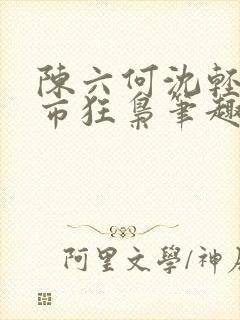 陳六何沈輕
市狂梟筆趣
阿里文學/神